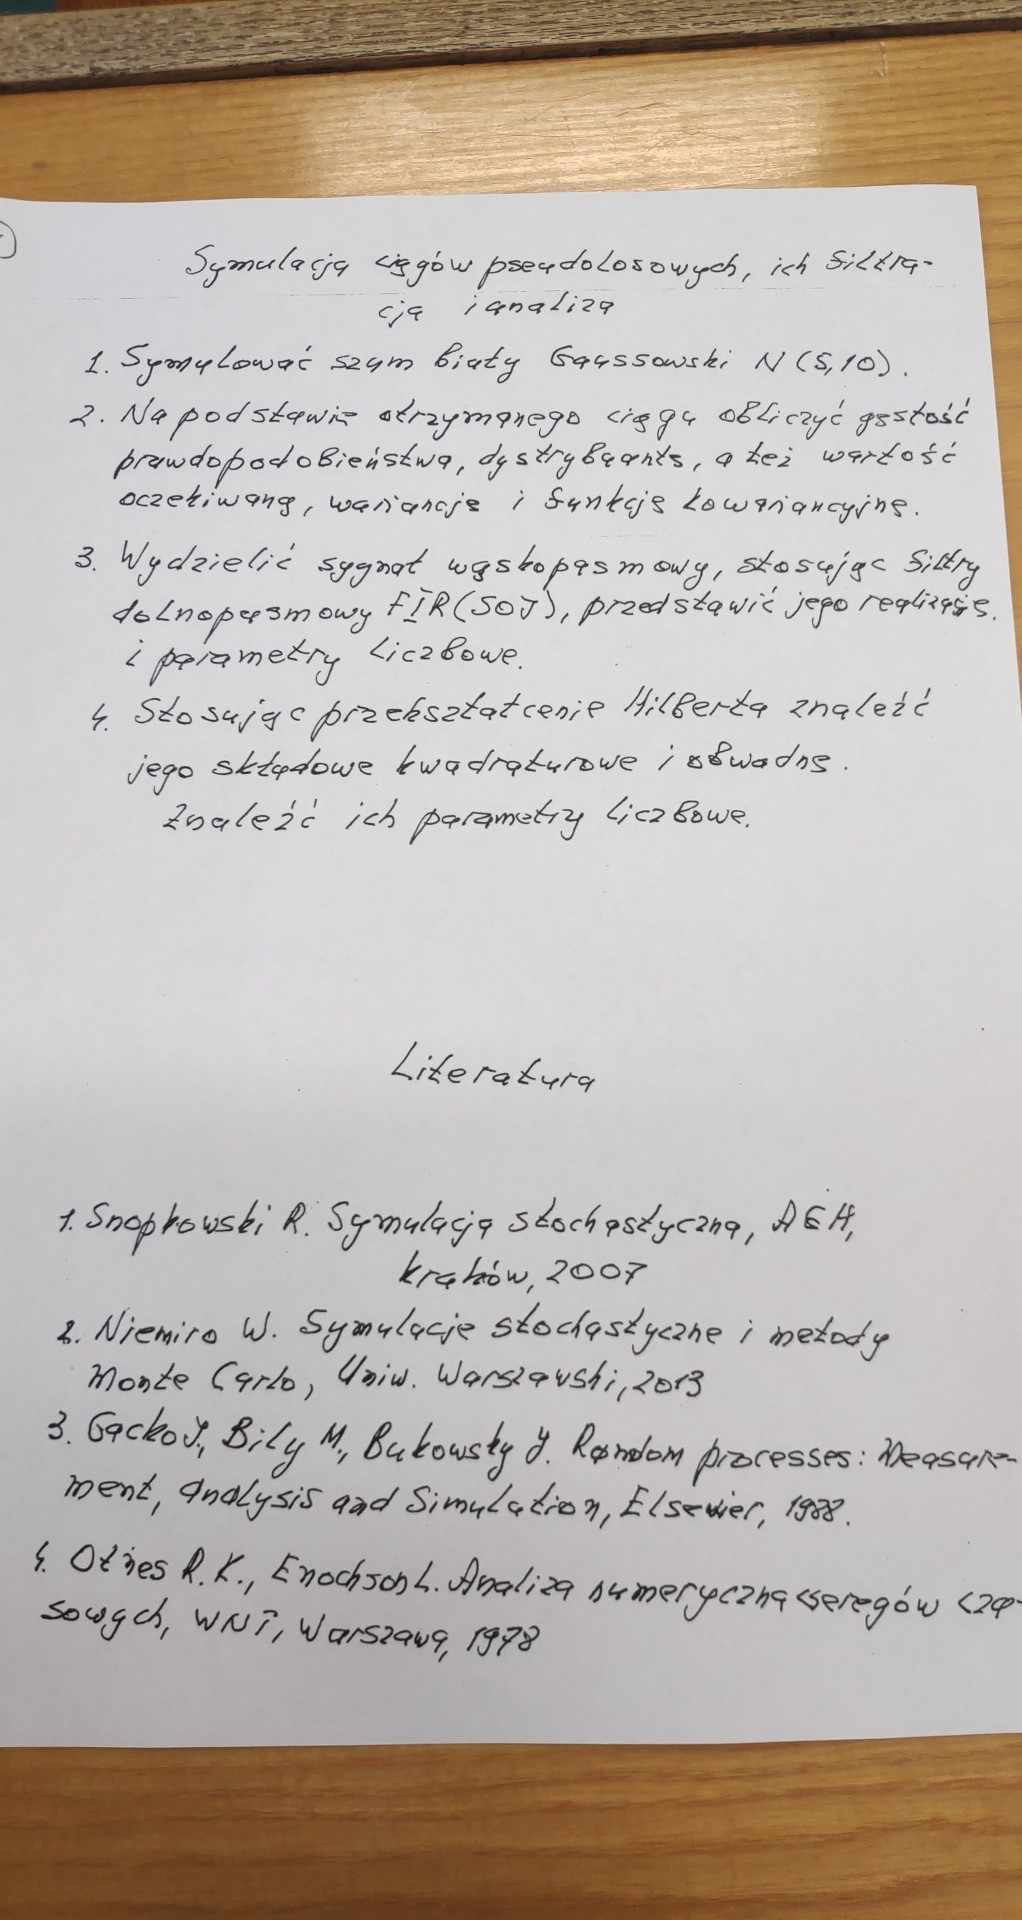 Symulacja ciągów pseudolosowych, ich filtra-
cja i analiza
1. Symulować szum biały Gaussowski N(5,10).
2. Na podstawie otrzymanego ciągu obliczyć gęstość
prawdopodobieństwa, dystrybuantę, a też wartość
oczekiwaną, wariancję i funkcję kowariancyjną.
3. Wydzielić sygnał wąskopasmowy, stosując filtry
dolnopasmowy FIR(SOJ), przedstawić jego realizację.
i parametry liczbowe.
4. Stosując przekształcenie Hilberta znaleźć
jego składowe kwadraturowe i obwodnę.
Znaleźć ich parametry liczbowe.
Literatura
1. Snopkowski R. Symulacja stochastyczna, AGH,
Kraków, 2007
2. Niemiro W. Symulacje stochastyczne i metody
Monte Carlo, Uniw. Warszawski, 2013
3. Gacko J., Bily M., Bukowsky J. Random processes: Measure-
ment, analysis and Simulation, Elsevier, 1988.
4. Otnes R.K., Enochson L. Analiza numeryczna szeregów cza-
sowych, WNT, Warszawa, 1978